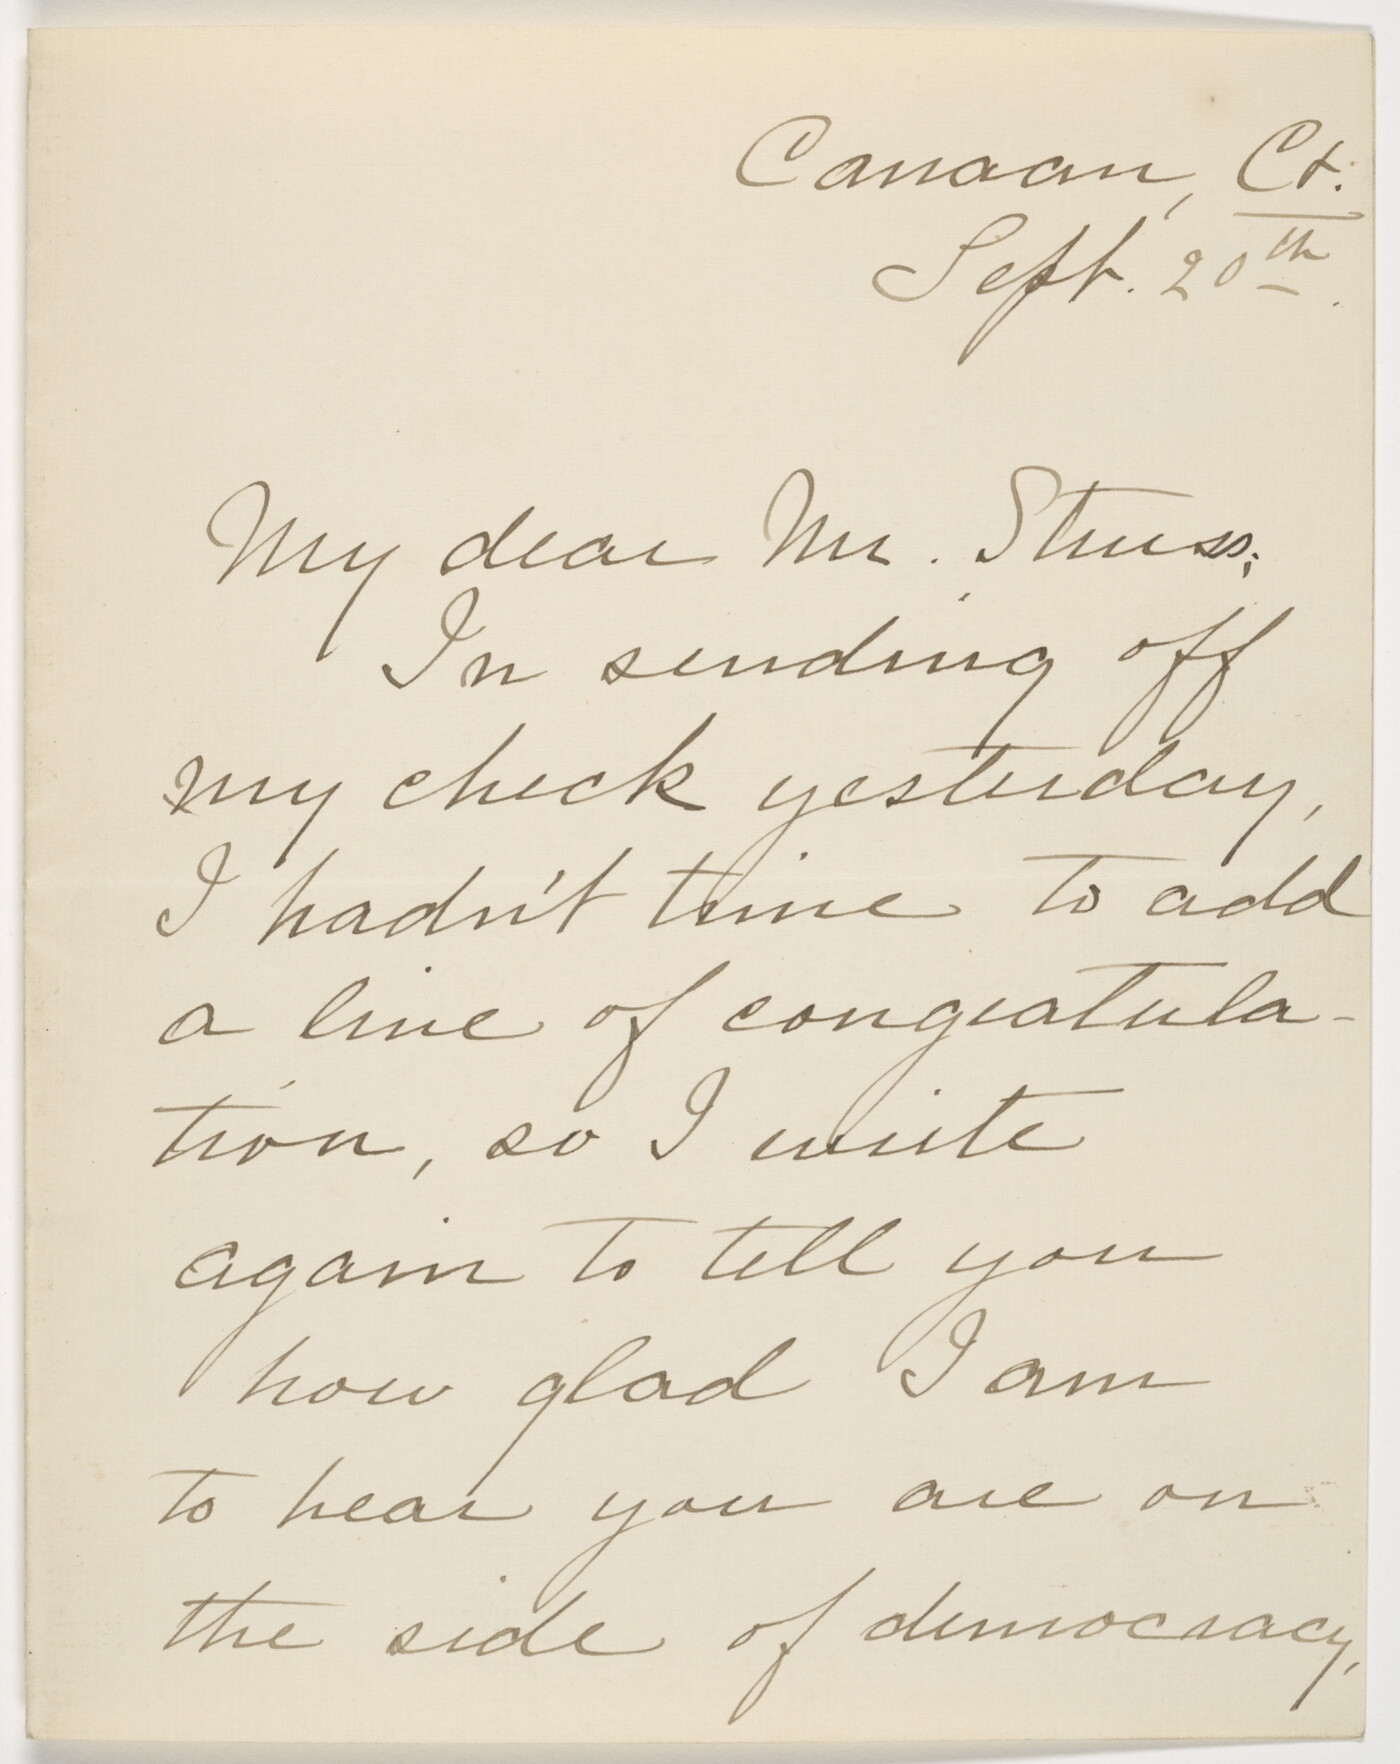 Canaan, Ct.
Sept. 20th.
My dear Mr. Struss;
In sending off
my check yesterday,
I hadn't time to add
a line of congratula-
tion, so I write
again to tell you
how glad I am
to hear you are on
the side of democracy,